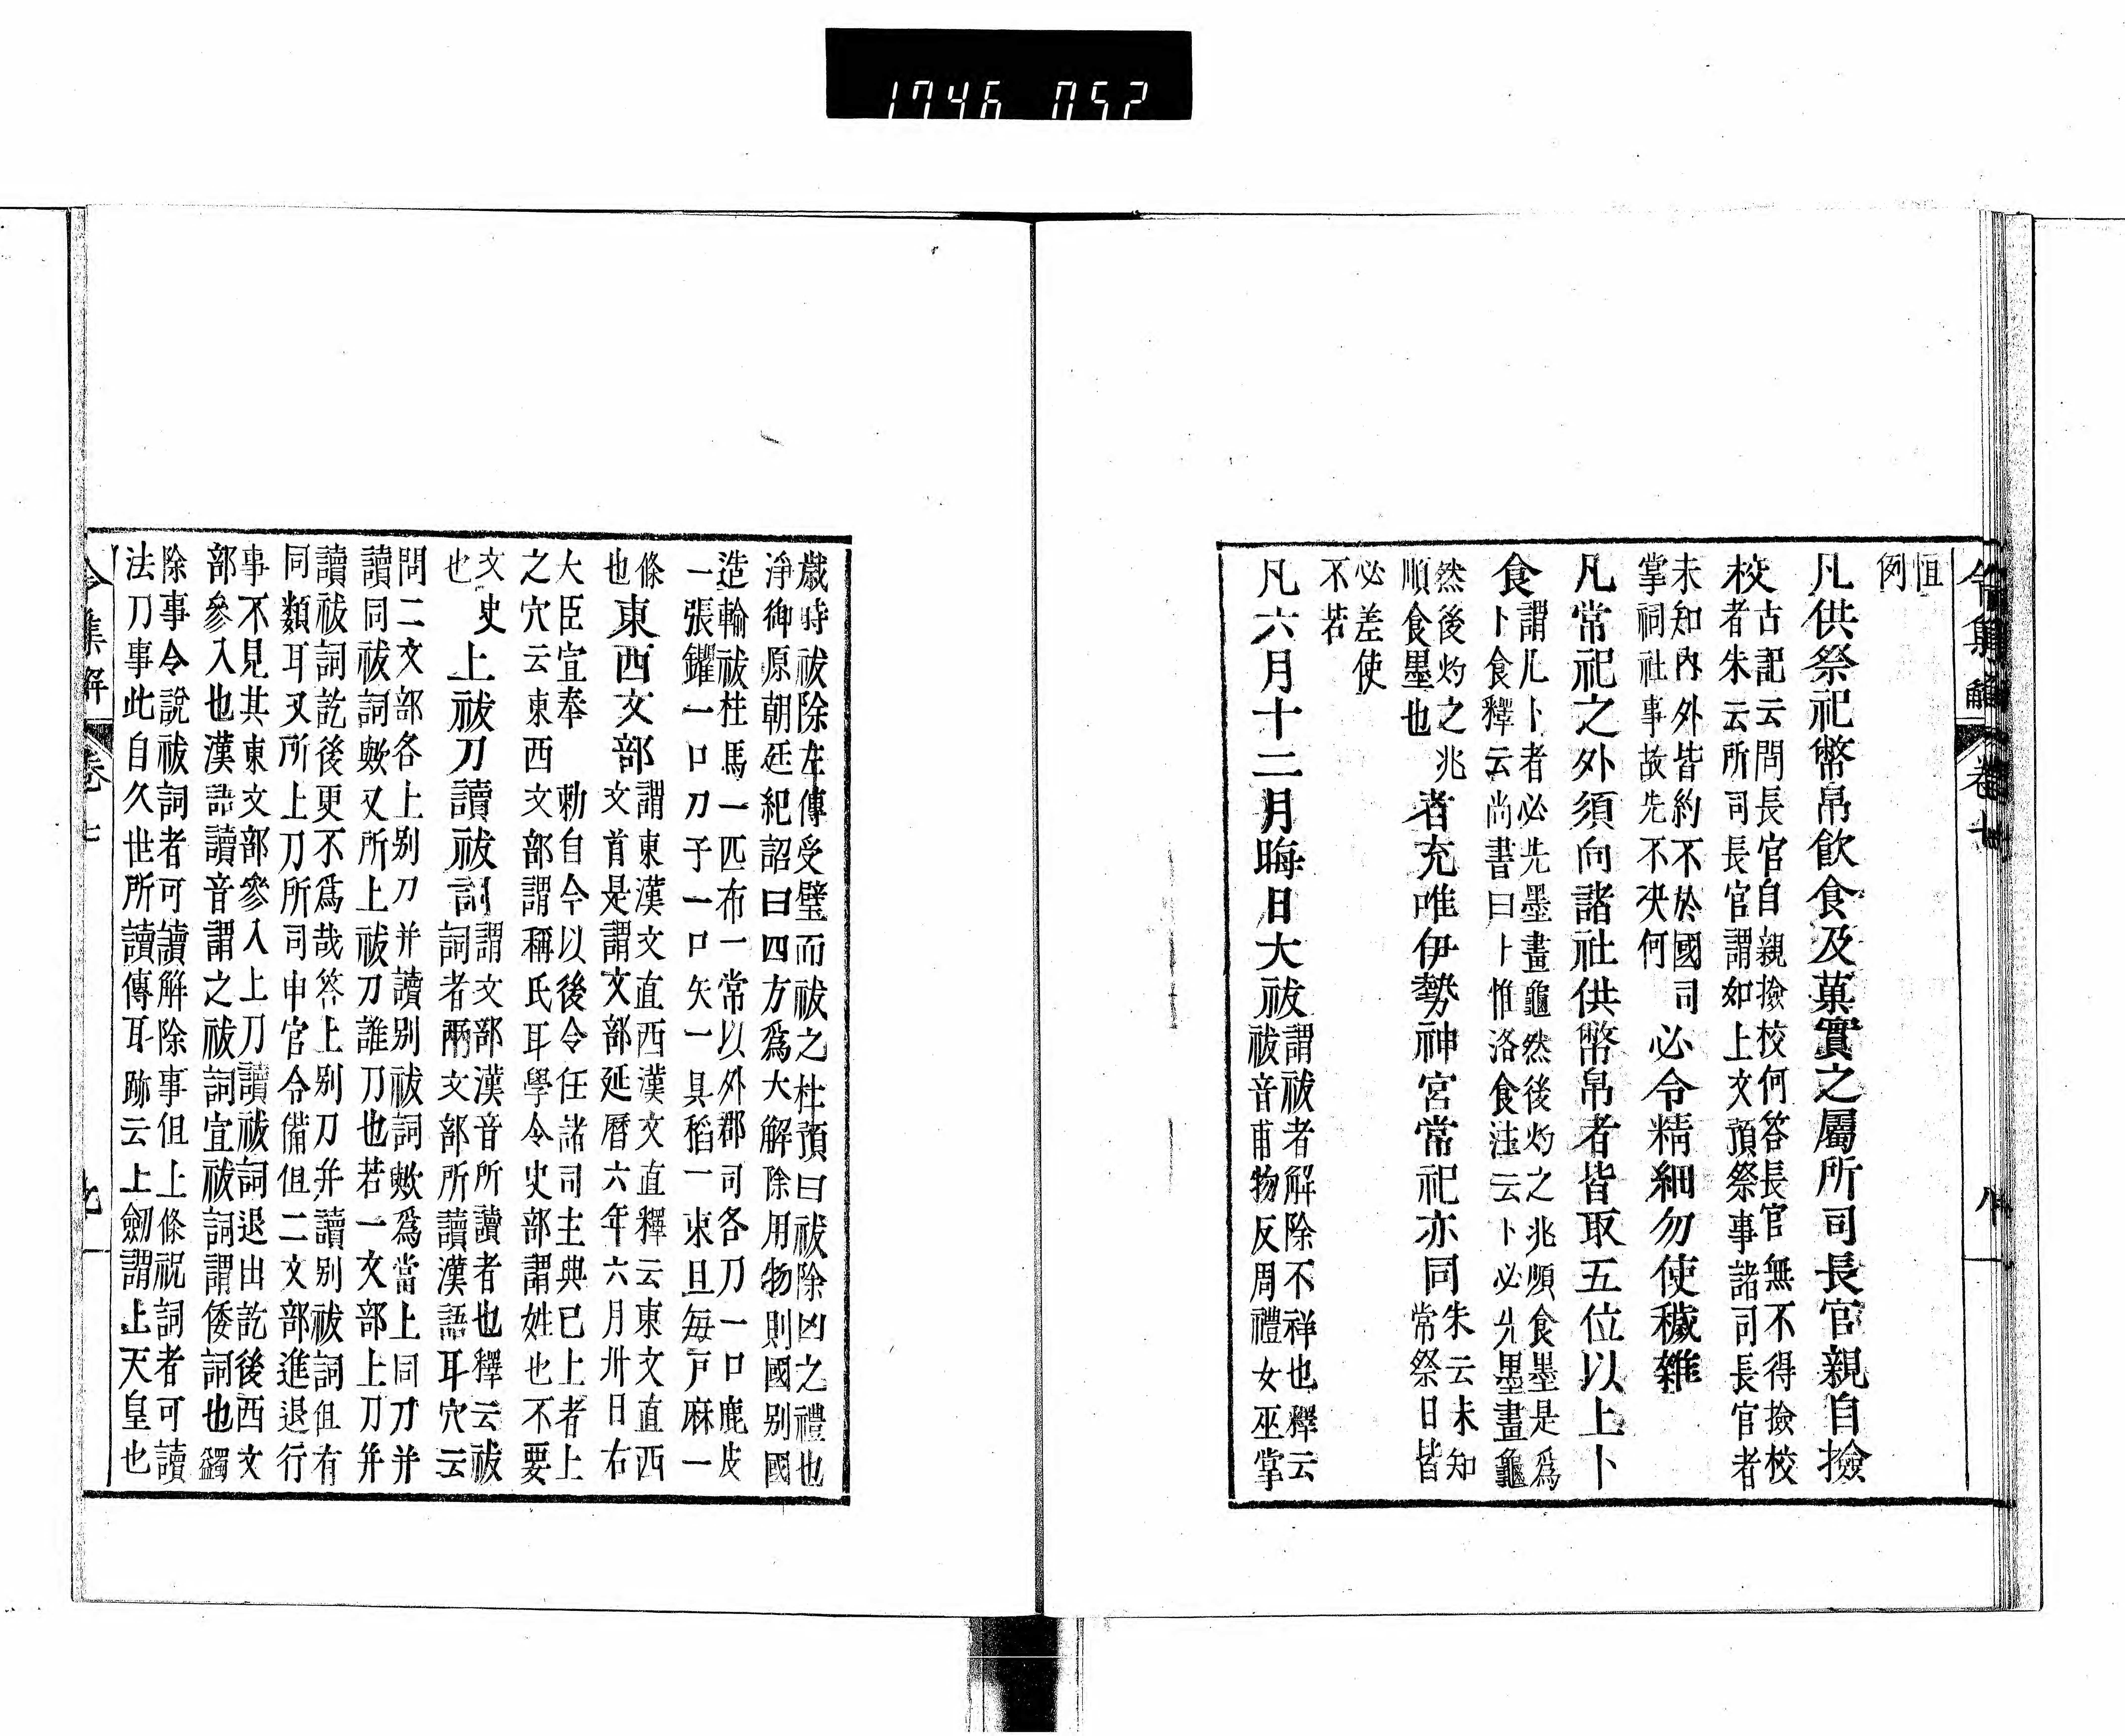 1746 052
令集解 卷七 八
恒
例
凡供祭祀幣帛飮食及菓實之屬所司長官親自撿
校
古記云問長官自親撿校何答長官無不得撿校
者朱云所司長官謂如上文預祭事諸司長官者
未知內外皆約不於國司
掌祠社事故先不决何
必令精細勿使穢雜
凡常祀之外須向諸社供幣帛者皆取五位以上卜
食
謂凡卜者必先墨畫龜然後灼之兆順食墨是爲
卜食釋云尚書曰卜惟洛食注云卜必先墨畫龜
然後灼之兆
順食墨也
者充唯伊勢神宮常祀亦同
朱云未知
常祭日皆
必差使
不若
凡六月十二月晦日大祓
謂祓者解除不祥也釋云
祓音甫物反周禮女巫掌
歲時祓除左傳受璧而祓之杜預曰祓除凶之禮也
淨御原朝廷紀詔曰四方爲大解除用物則國别國
造輸祓柱馬一匹布一常以外郡司各刀一口鹿皮
一張钁一口刀子一口矢一具稻一束且每戶麻一
條
也
東西文部
謂東漢文直西漢文直釋云東文直西
文首是謂文部延曆六年六月卅日右
大臣宣奉 勅自今以後令任諸司主典已上者上
之穴云東西文部謂稱氏耳學令史部謂姓也不要
文史
也
上祓刀讀祓詞
謂文部漢音所讀者也釋云祓
詞者兩文部所讀漢語耳穴云
問二文部各上别刀并讀别祓詞歟爲當上同刀并
讀同祓詞歟又所上祓刀誰刀也若一文部上刀并
讀祓詞訖後更不爲哉答上别刀并讀别祓詞但有
同類耳又所上刀所司申官令備但二文部進退行
事不見其東文部參入上刀讀祓詞退出訖後西文
部參入也漢語讀音謂之祓詞宣祓詞謂倭詞也蠲
除事令說祓詞者可讀解除事但上條祝詞者可讀
法刀事此自久世所讀傳耳跡云上劒謂上天皇也
令集解 卷七 九